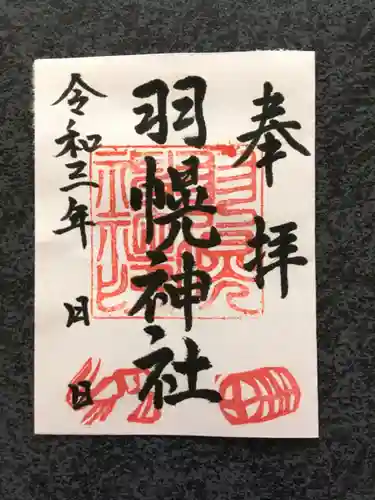 奉拝
羽幌神社
令和三年 日 日